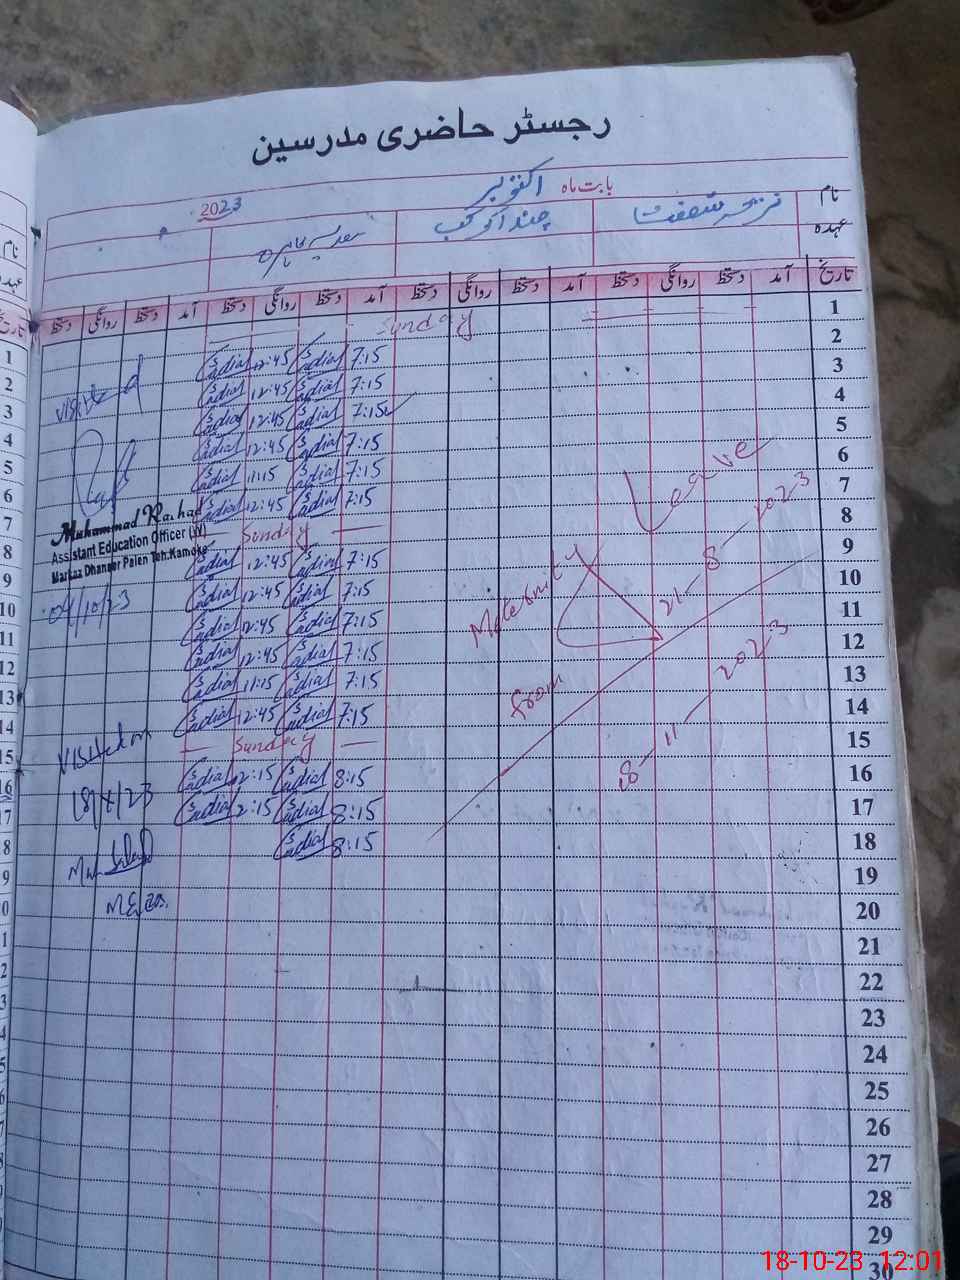 رجسٹر حاضری مدرسین
بابت ماہ اکتوبر 2023
نام
عہدہ
تاریخ آمد دستخط روانگی دستخط آمد دستخط روانگی دستخط آمد دستخط روانگی دستخط آمد دستخط روانگی دستخط
1 Sunday
2 7:15 Sadia 12:45 Sadia
3 7:15 Sadia 12:45 Sadia
4 7:15 Sadia 12:45 Sadia
5 7:15 Sadia 12:45 Sadia
6 7:15 Sadia 11:15 Sadia
7 7:15 Sadia 12:45 Sadia
8 Sunday
9 7:15 Sadia 12:45 Sadia
10 7:15 Sadia 12:45 Sadia
11 7:15 Sadia 12:45 Sadia
12 7:15 Sadia 12:45 Sadia
13 7:15 Sadia 11:15 Sadia
14 7:15 Sadia 12:45 Sadia
15 Sunday
16 8:15 Sadia 2:15 Sadia
17 8:15 Sadia 2:15 Sadia
18 8:15 Sadia
19
20
21
22
23
24
25
26
27
28
29
30
Leave
from 21-8-2023
18-11-2023
Visited
Muhammad Rashad
Assistant Education Officer
Markaz Dhanser Paien Teh:Kamoke
04/10/23
18-10-23 12:01